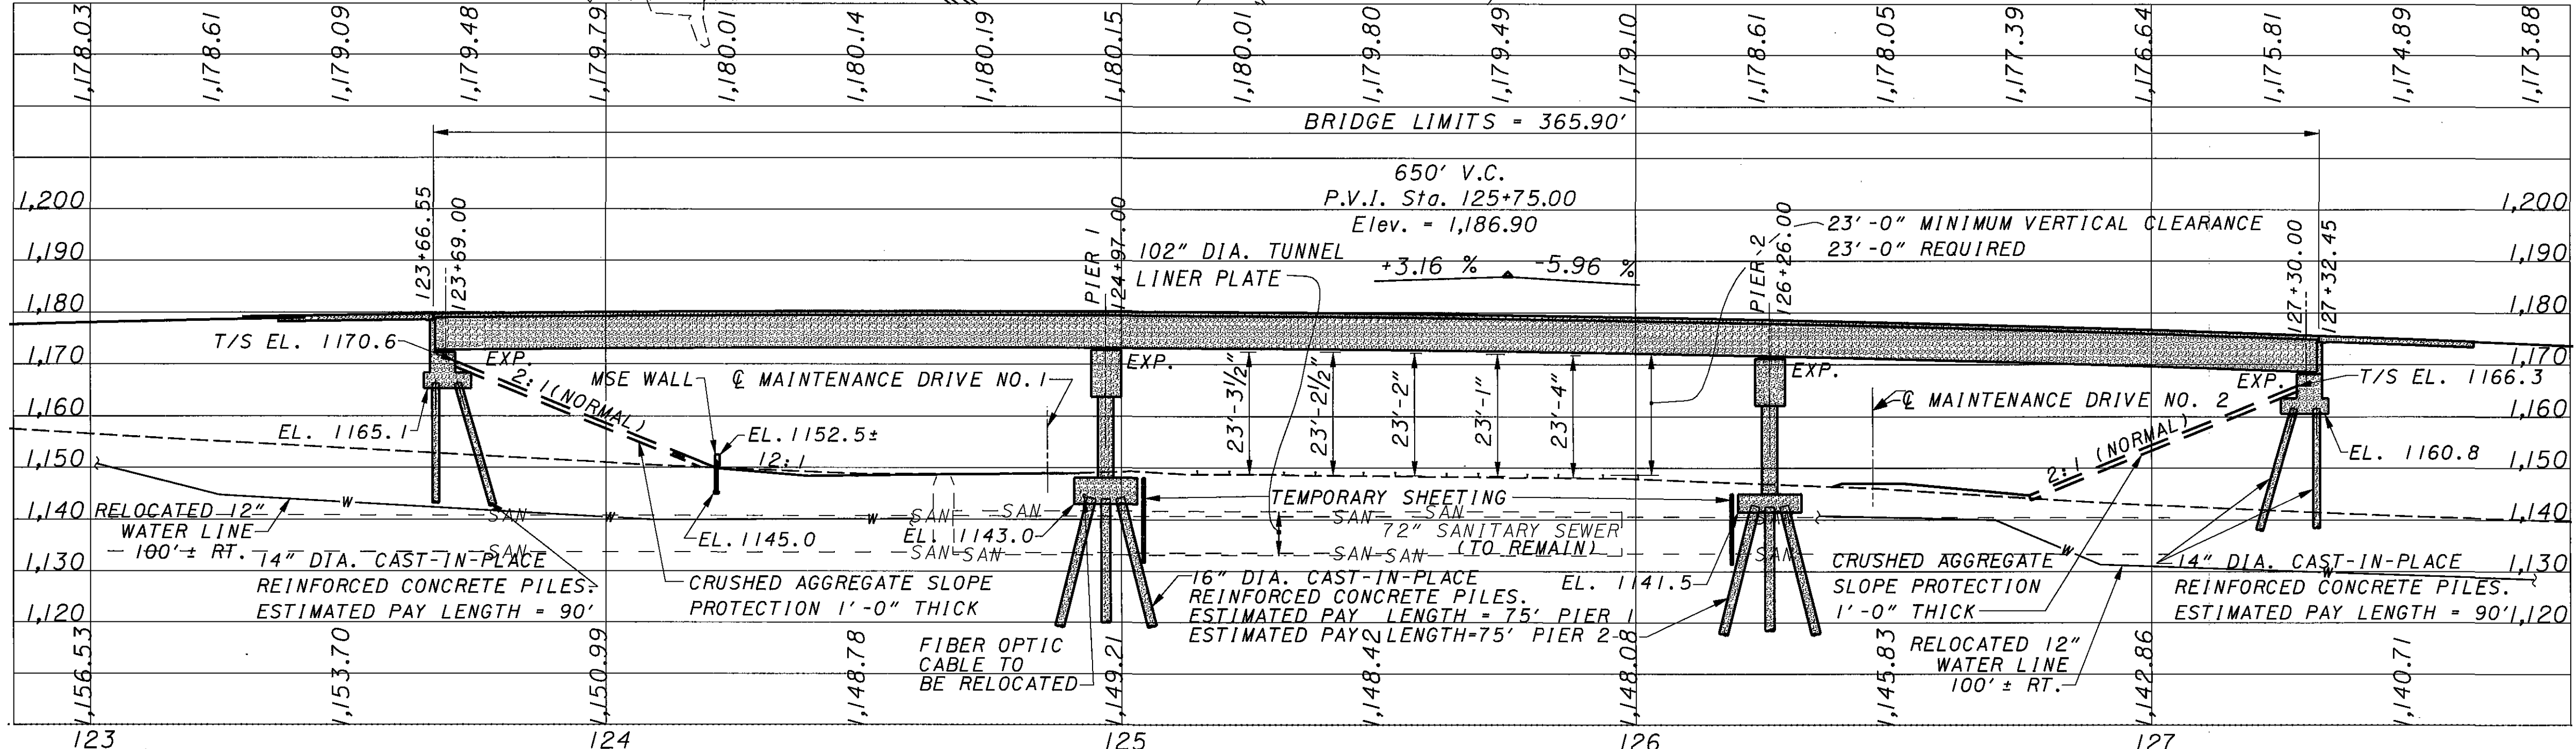 1,178.03
1,178.61
1,179.09
1,179.48
1,179.79
1,180.01
1,180.14
1,180.19
1,180.15
1,180.01
1,179.80
1,179.49
1,179.10
1,178.61
1,178.05
1,177.39
1,176.64
1,175.81
1,174.89
1,173.88
BRIDGE LIMITS = 365.90'
650' V.C.
P.V.I. Sta. 125+75.00
Elev. = 1,186.90
+3.16 % -5.96 %
1,200
1,190
1,180
1,170
1,160
1,150
1,140
1,130
1,120
123+66.55
123+69.00
PIER 1
124+97.00
102" DIA. TUNNEL
LINER PLATE
PIER 2
126+26.00
23'-0" MINIMUM VERTICAL CLEARANCE
23'-0" REQUIRED
127+30.00
127+32.45
1,200
1,190
1,180
1,170
1,160
1,150
1,140
1,130
1,120
T/S EL. 1170.6
EXP.
2:1 (NORMAL)
MSE WALL
℄ MAINTENANCE DRIVE NO. 1
EXP.
23'-3½"
23'-2½"
23'-2"
23'-1"
23'-4"
EXP.
℄ MAINTENANCE DRIVE NO. 2
EXP.
T/S EL. 1166.3
EL. 1165.1
EL. 1152.5±
12:1
2:1 (NORMAL)
EL. 1160.8
W
RELOCATED 12"
WATER LINE
100'± RT.
SAN
SAN
W
EL. 1145.0
W
SAN
SAN
EL. 1143.0
SAN
SAN
TEMPORARY SHEETING
SAN
SAN
72" SANITARY SEWER
(TO REMAIN)
SAN
SAN
SAN
W
W
14" DIA. CAST-IN-PLACE
REINFORCED CONCRETE PILES.
ESTIMATED PAY LENGTH = 90'
CRUSHED AGGREGATE SLOPE
PROTECTION 1'-0" THICK
16" DIA. CAST-IN-PLACE
REINFORCED CONCRETE PILES.
ESTIMATED PAY LENGTH = 75' PIER 1
ESTIMATED PAY LENGTH=75' PIER 2
EL. 1141.5
CRUSHED AGGREGATE
SLOPE PROTECTION
1'-0" THICK
14" DIA. CAST-IN-PLACE
REINFORCED CONCRETE PILES.
ESTIMATED PAY LENGTH = 90'
FIBER OPTIC
CABLE TO
BE RELOCATED
RELOCATED 12"
WATER LINE
100'± RT.
1,156.53
1,153.70
1,150.99
1,148.78
1,149.21
1,148.42
1,148.08
1,145.83
1,142.86
1,140.71
123
124
125
126
127